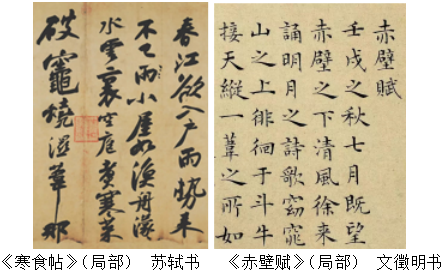 春江欲入户雨勢来
不已雨小屋如漁舟濛
水雲裏空庖煮寒菜
破竈燒濕葦那
赤壁賦
壬戌之秋七月既望
赤壁之下清風徐来
誦明月之詩歌窈窕
山之上徘徊于斗牛
接天縱一葦之所如
《寒食帖》（局部） 苏轼书
《赤壁赋》（局部） 文徵明书